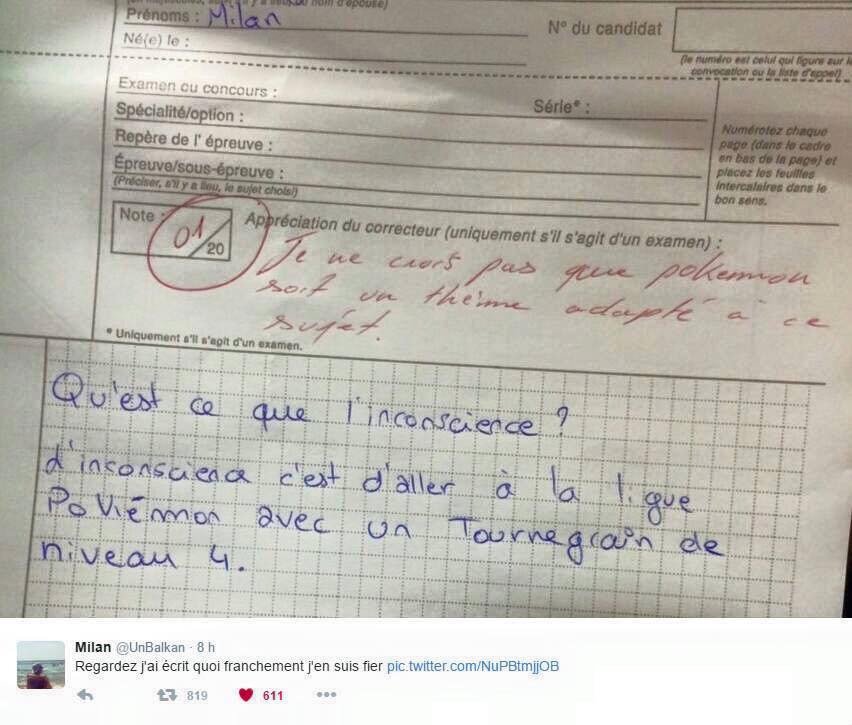 Prénoms : Milan
Né(e) le :
N° du candidat
(le numéro est celui qui figure sur la
convocation ou la liste d'appel)
Examen ou concours :
Série* :
Spécialité/option :
Repère de l'épreuve :
Épreuve/sous-épreuve :
(Préciser, s'il y a lieu, le sujet choisi)
Numérotez chaque
page (dans le cadre
en bas de la page) et
placez les feuilles
intercalaires dans le
bon sens.
Note :
01/20
Appréciation du correcteur (uniquement s'il s'agit d'un examen) :
Je ne crois pas que pokemmon
soit un thème adapté à ce
sujet.
* Uniquement s'il s'agit d'un examen.
Qu'est ce que l'inconscience ?
L'inconscience c'est d'aller à la ligue
Pokémmon avec un Tournegrain de
niveau 4.
Milan @UnBalkan · 8 h
Regardez j'ai écrit quoi franchement j'en suis fier pic.twitter.com/NuPBtmjjOB
819 611